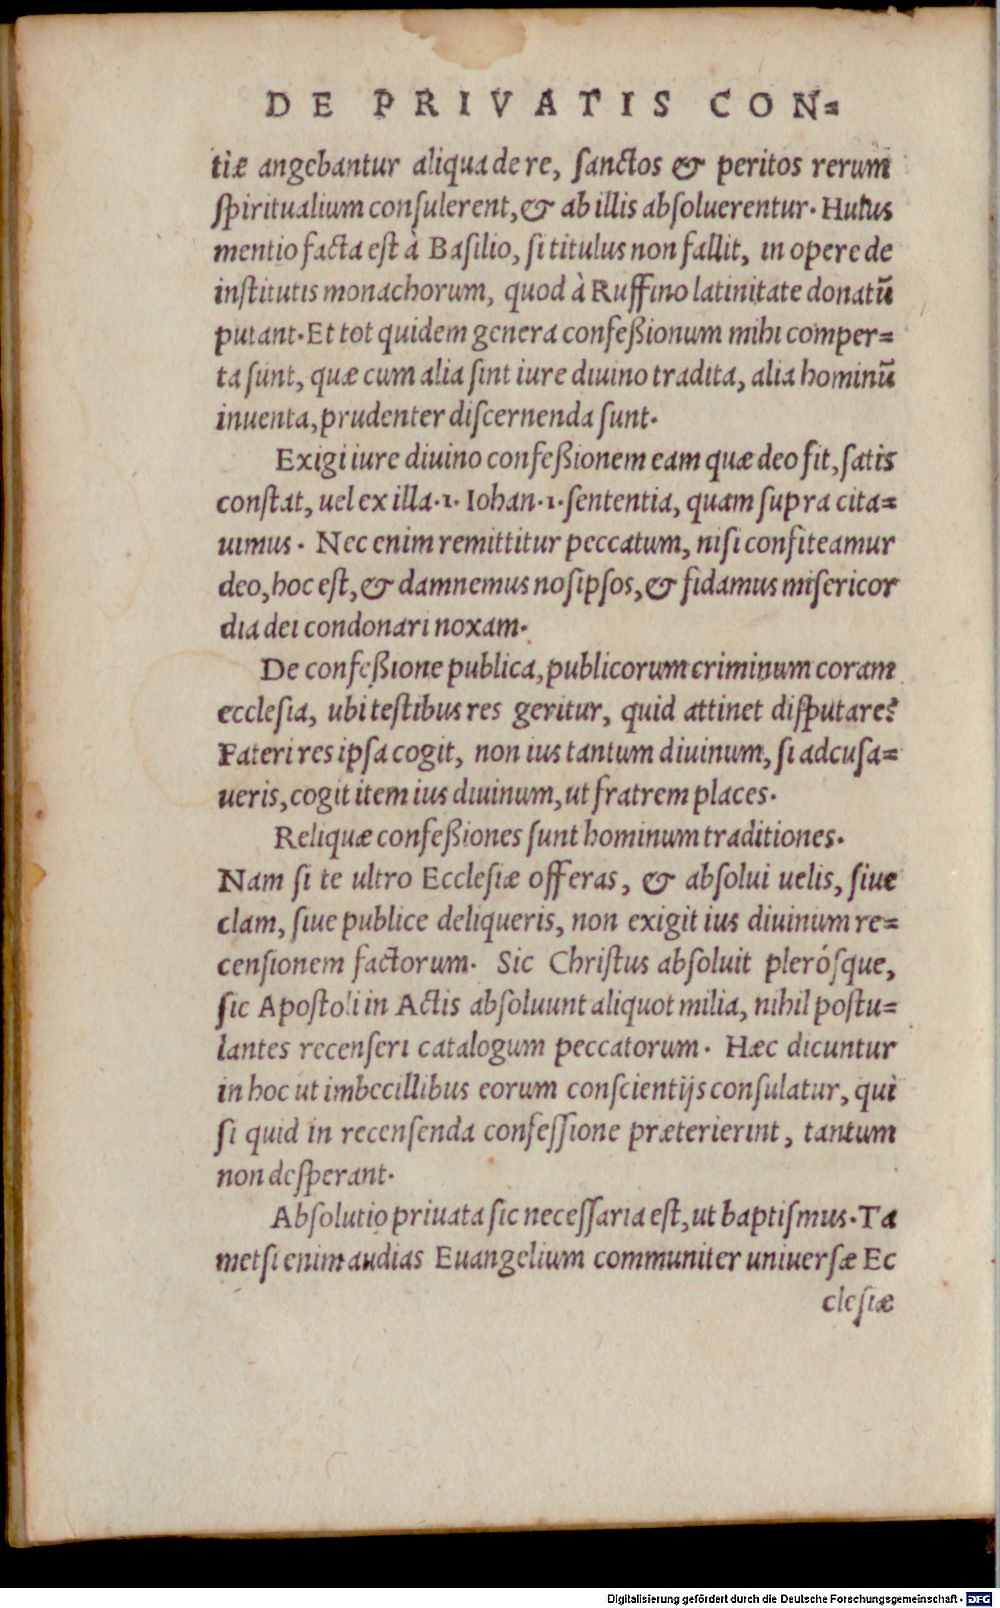 DE PRIVATIS CON=
tiæ angebantur aliqua de re, ſanctos & peritos rerum
ſpiritualium conſulerent, & ab illis abſoluerentur. Huius
mentio facta eſt à Baſilio, ſi titulus non fallit, in opere de
inſtitutis monachorum, quod à Ruffino latinitate donatū
putant. Et tot quidem genera confeßionum mihi comper=
ta ſunt, quæ cum alia ſint iure diuino tradita, alia hominū
inuenta, prudenter diſcernenda ſunt.
Exigi iure diuino confeßionem eam quæ deo fit, ſatis
conſtat, uel ex illa .1. Iohan .1. ſententia, quam ſupra cita=
uimus . Nec enim remittitur peccatum, niſi confiteamur
deo, hoc eſt, & damnemus noſipſos, & fidamus miſericor
dia dei condonari noxam.
De confeßione publica, publicorum criminum coram
eccleſia, ubi teſtibus res geritur, quid attinet diſputare?
Fateri res ipſa cogit, non ius tantum diuinum, ſi adcuſa=
ueris, cogit item ius diuinum, ut fratrem places.
Reliquæ confeßiones ſunt hominum traditiones.
Nam ſi te ultro Eccleſiæ offeras, & abſolui uelis, ſiue
clam, ſiue publice deliqueris, non exigit ius diuinum re=
cenſionem factorum. Sic Chriſtus abſoluit pleróſque,
ſic Apoſtoli in Actis abſoluunt aliquot milia, nihil poſtu=
lantes recenſeri catalogum peccatorum. Hæc dicuntur
in hoc ut imbecillibus eorum conſcientijs conſulatur, qui
ſi quid in recenſenda confeſſione præterierint, tantum
non deſperant.
Abſolutio priuata ſic neceſſaria eſt, ut baptiſmus. Ta
metſi enim audias Euangelium communiter uniuerſæ Ec
cleſiæ
Digitalisierung gefördert durch die Deutsche Forschungsgemeinschaft - DFG